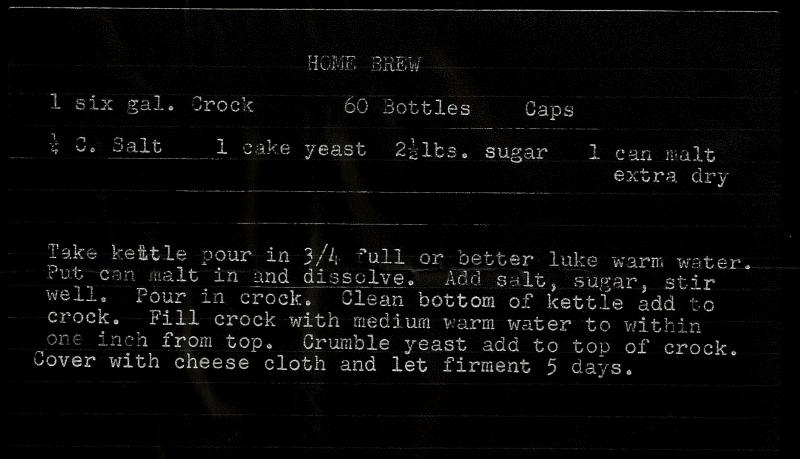 HOME BREW
1 six gal. Crock 60 Bottles Caps
¼ C. Salt 1 cake yeast 2½lbs. sugar 1 can malt
extra dry
Take kettle pour in 3/4 full or better luke warm water.
Put can malt in and dissolve. Add salt, sugar, stir
well. Pour in crock. Clean bottom of kettle add to
crock. Fill crock with medium warm water to within
one inch from top. Crumble yeast add to top of crock.
Cover with cheese cloth and let firment 5 days.